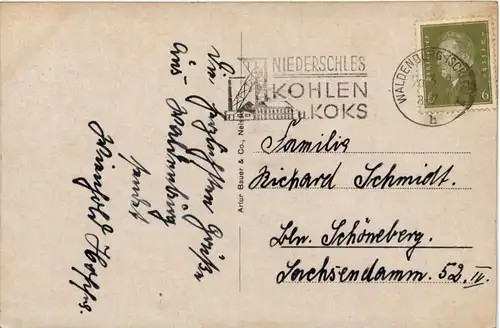 Die herzlichsten Grüße
aus Waldenburg
sendet
NIEDERSCHLES
KOHLEN
u. KOKS
WALDENBURG (SCHLES)
b
6
Artur Bauer & Co.,
Familie
Richard Schmidt.
Bln. Schöneberg.
Sachsendamm. 52. IV.